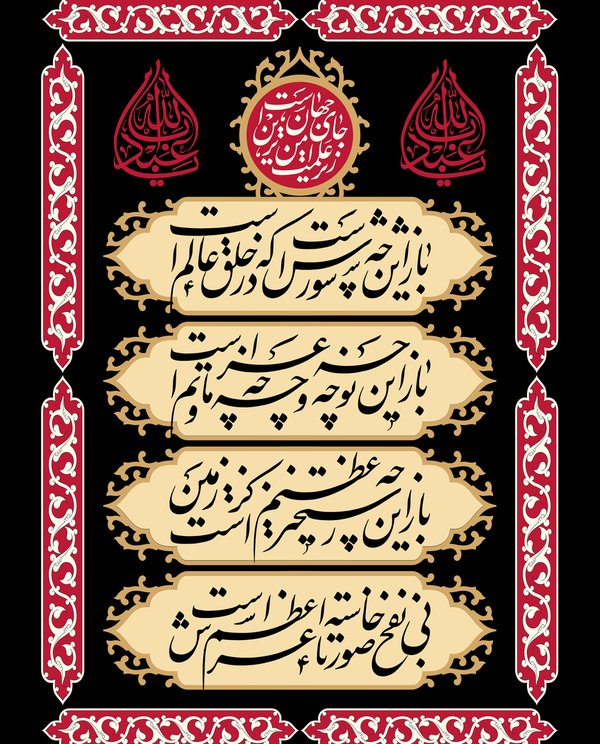 یا اباعبدالله
جای جهان است
یا اباعبدالله
باز این چه شورش است که در خلق عالم است
باز این چه نوحه و چه عزا و چه ماتم است
باز این چه رستخیز عظیم است کز زمین
بی نفخ صور خاسته تا عرش اعظم است